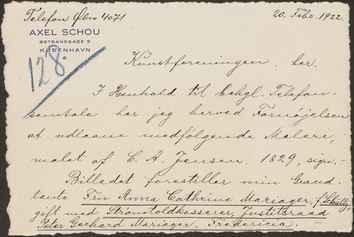 Telefon Øbro 4071
20. Febr. 1922.
AXEL SCHOU
ØSTBANEGADE 9
KØBENHAVN
128.
Kunstforeningen, her.
I Henhold til behgl. Telefon-
samtale har jeg herved Fornøjelsen
at udlaane medfølgende Maleri,
malet af C. A. Jensen. 1829, sign. -
Billedet forestiller min Grand-
tante Fru Anna Cathrine Mariager, f.
gift med Strømtoldkasserer, Justitsraad
Peter Gerhard Mariager, Fredericia. -